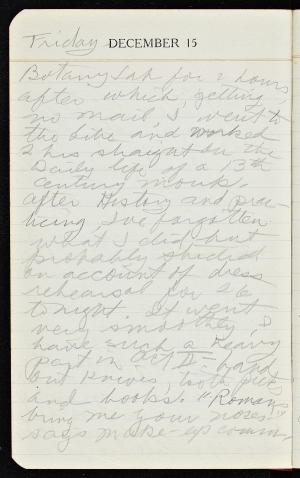 Friday DECEMBER 15
Botany Lab for 2 hours
after which, getting
no mail, I went to
the Libe and worked
2 hrs straight on the
Daily life of a 13th
century monk.
After History and prac-
ticing, I've forgotten
what I did, but
probably studied
on account of dress
rehearsal for
tonight. It went
very smoothly, I
have such a heavy
part in Act II - hand
out knives, tooth picks
and books. "Romans
bring me your noses"
says make-up comm.